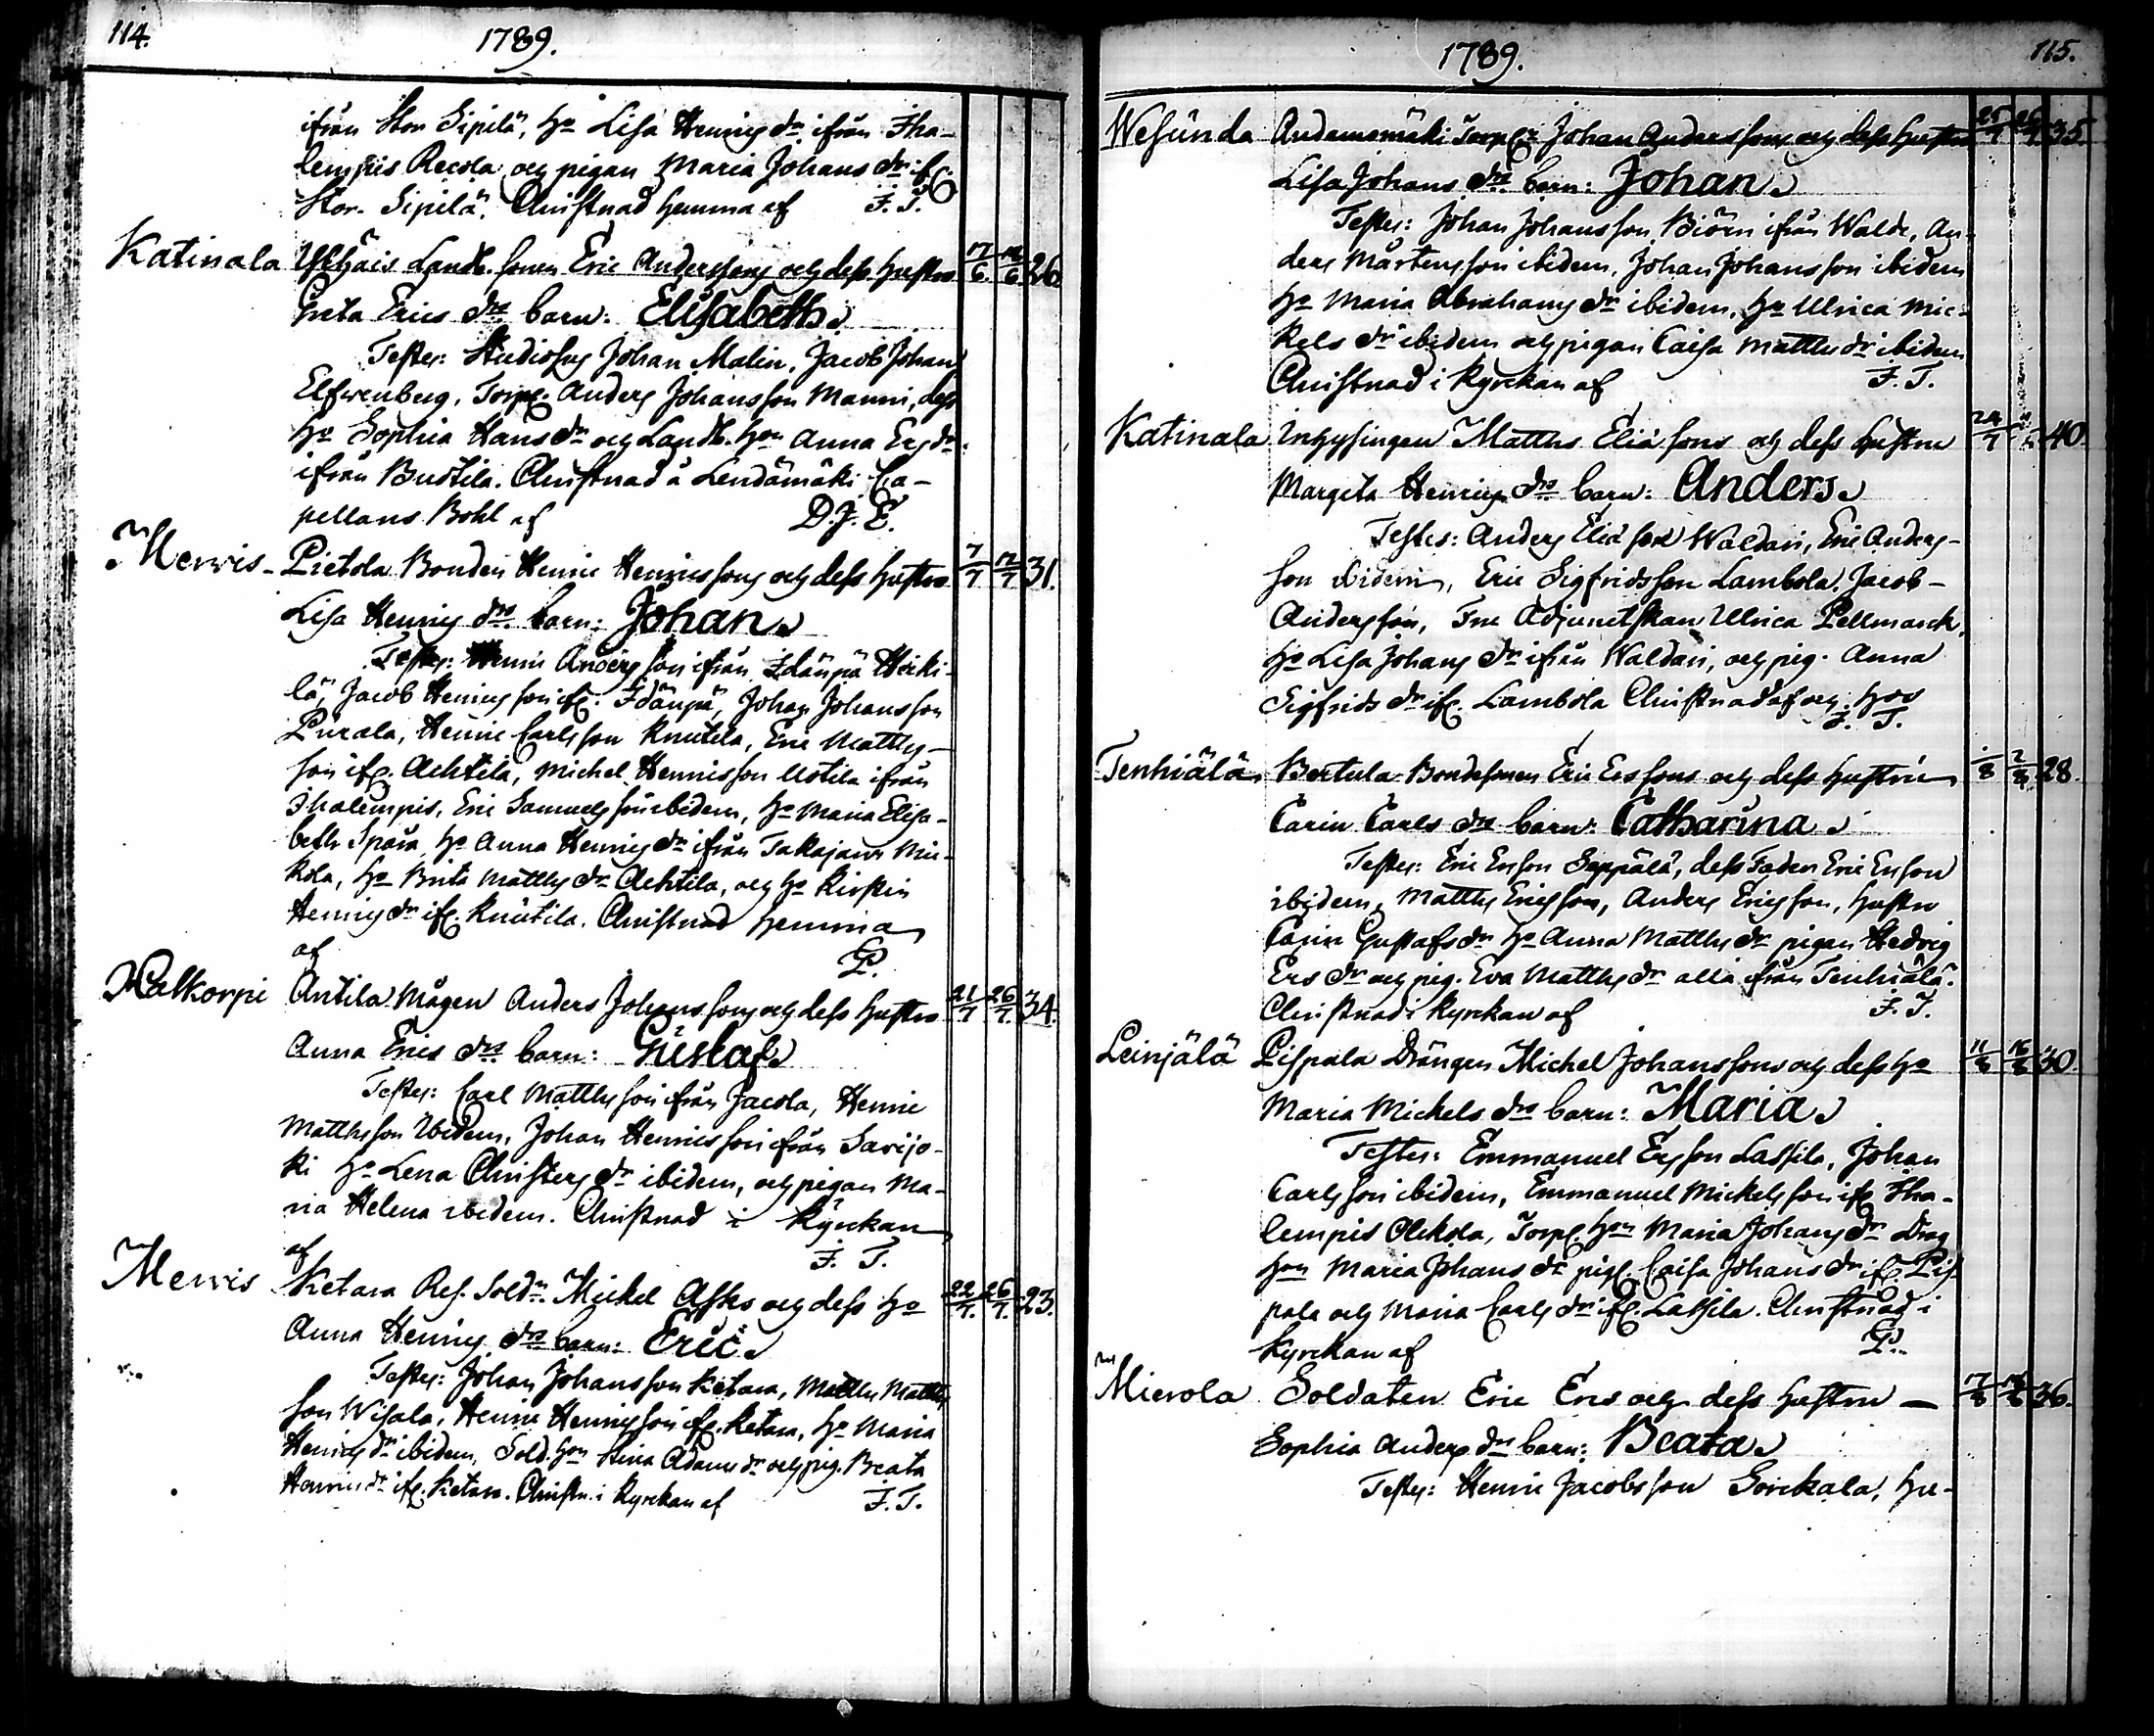 114.
1789.
ifrån Stor Sipilä, Ho Lisa Henrics dr ifrån Iha-
lempis Recola och pigan Maria Johans dr ifr.
Stor. Sipilä. Christnad hemma af F. T.
Katinala Ylhäis Landb. sonen Eric Anderssons och dess hustru 17/6 6. 26
Greta Erics drs barn: Elisabeth.
Testes: Studiosus Johan Malin, Jacob Johan
Elfwenberg, Torp. Anders Johansson Manni, dess
Ho Sophia Hans dr och Landb. Hon Anna Ers dr
ifrån Budtila. Christnad å Lendämäki Ca-
pellans Bohl af D. J. E.
Merwis- Pietola Bonden Henric Henricssons och dess hustru 7/7 12/7 31.
Lisa Henrics drs barn: Johan.
Testes: Henric Andersson ifrån Idänpä Heiki-
lä, Jacob Henricsson ifr. Idänpä, Johan Johansson
Purala, Henric Carlsson Knutila, Eric Matths-
son ifr. Achtila, Michel Henricsson Ustila ifrån
Ihalempis, Eric Samuelsson ibidem, Ho Maria Elisa-
beth Spåra, Ho Anna Henrics dr ifrån Takajärvi Mic-
kola, Ho Brita Matths dr Achtila, och Ho Kirstin
Henrics dr ifr. Knutila. Christnad hemma
af P.
Malkorpi Antila Mågen Anders Johanssons och dess hustru 21/7 26/7 34.
Anna Erics drs barn: Gustaf.
Testes: Carl Matthsson ifrån Jacola, Henric
Matthsson Ibidem, Johan Henricsson ifrån Sarijo-
ki Ho Lena Christers dr ibidem, och pigan Ma-
ria Helena ibidem. Christnad i Kyrckan
af F. T.
Merwis Ketara Res. Soldn. Mickel Asks och dess Ho 22/7. 26/7. 23.
Anna Henrics drs barn: Eric.
Testes: Johan Johansson Ketara, Matths Matths
son Wisala, Henric Henricsson ifr. Ketara, Ho Maria
Henrics dr ibidem, Sold. Hon Stina Adams dr och pig. Beata
Henrics dr ifr. Ketara. Christn. i Kyrckan af F. T.
1789.
115.
Wesunda Andersmäki Torp. Johan Anderssons och dess hustru 25/7 26/7 35.
Lisa Johans drs barn: Johan.
Testes: Johan Johansson Biörn ifrån Walde, An-
ders Mårtensson ibidem, Johan Johansson ibidem
Ho Maria Abrahams dr ibidem, Ho Ulrica Mic-
kels dr ibidem och pigan Caisa Matths dr ibidem
Christnad i Kyrckan af F. T.
Katinala Inhysingen Matths Elia sons och dess hustru 24/7 40
Margeta Henrics drs barn: Anders.
Testes: Anders Elia son Waldari, Eric Anders-
son ibidem, Eric Sigfridsson Lambola, Jacob-
Andersson, Fru Adjunctskan Ulrica Pellmarck,
Ho Lisa Johans dr ifrån Waldari, och pig. Anna
Sigfrids dr ifr. Lambola Christnad af och hos
F. T.
Tenhiälä Bertula Bondesonen Eric Erssons och dess hustru 1/8 2/8. 28.
Carin Carls drs barn: Catharina.
Testes: Eric Ersson Seppälä, dess Fader Eric Ersson
ibidem, Matths Ericsson, Anders Ericsson, hustru
Carin Gustafs dr Ho Anna Matths dr pigan Hedvig
Ers dr och pig. Eva Matths dr alla ifrån Tenhiälä.
Christnad i Kyrckan af F. T.
Leinjälä Pispala Drängen Michel Johanssons och dess Ho 11/8 16/8 30.
Maria Mickels drs barn: Maria.
Testes: Emmanuel Ersson Lassila, Johan
Carlsson ibidem, Emmanuel Mickelsson ifr. Iha-
lempis Olckola, Torp. Hon Maria Johans dr Drag
Hon Maria Johans dr pig. Caisa Johans dr ifr. Pis-
pala och Maria Carls dr ifr. Lassila. Christnad i
Kyrckan af P.
Mierola Soldaten Eric Ers och dess hustru 17/8 36.
Sophia Anders drs barn: Beata.
Testes: Henric Jacobsson Sorckala, hu-